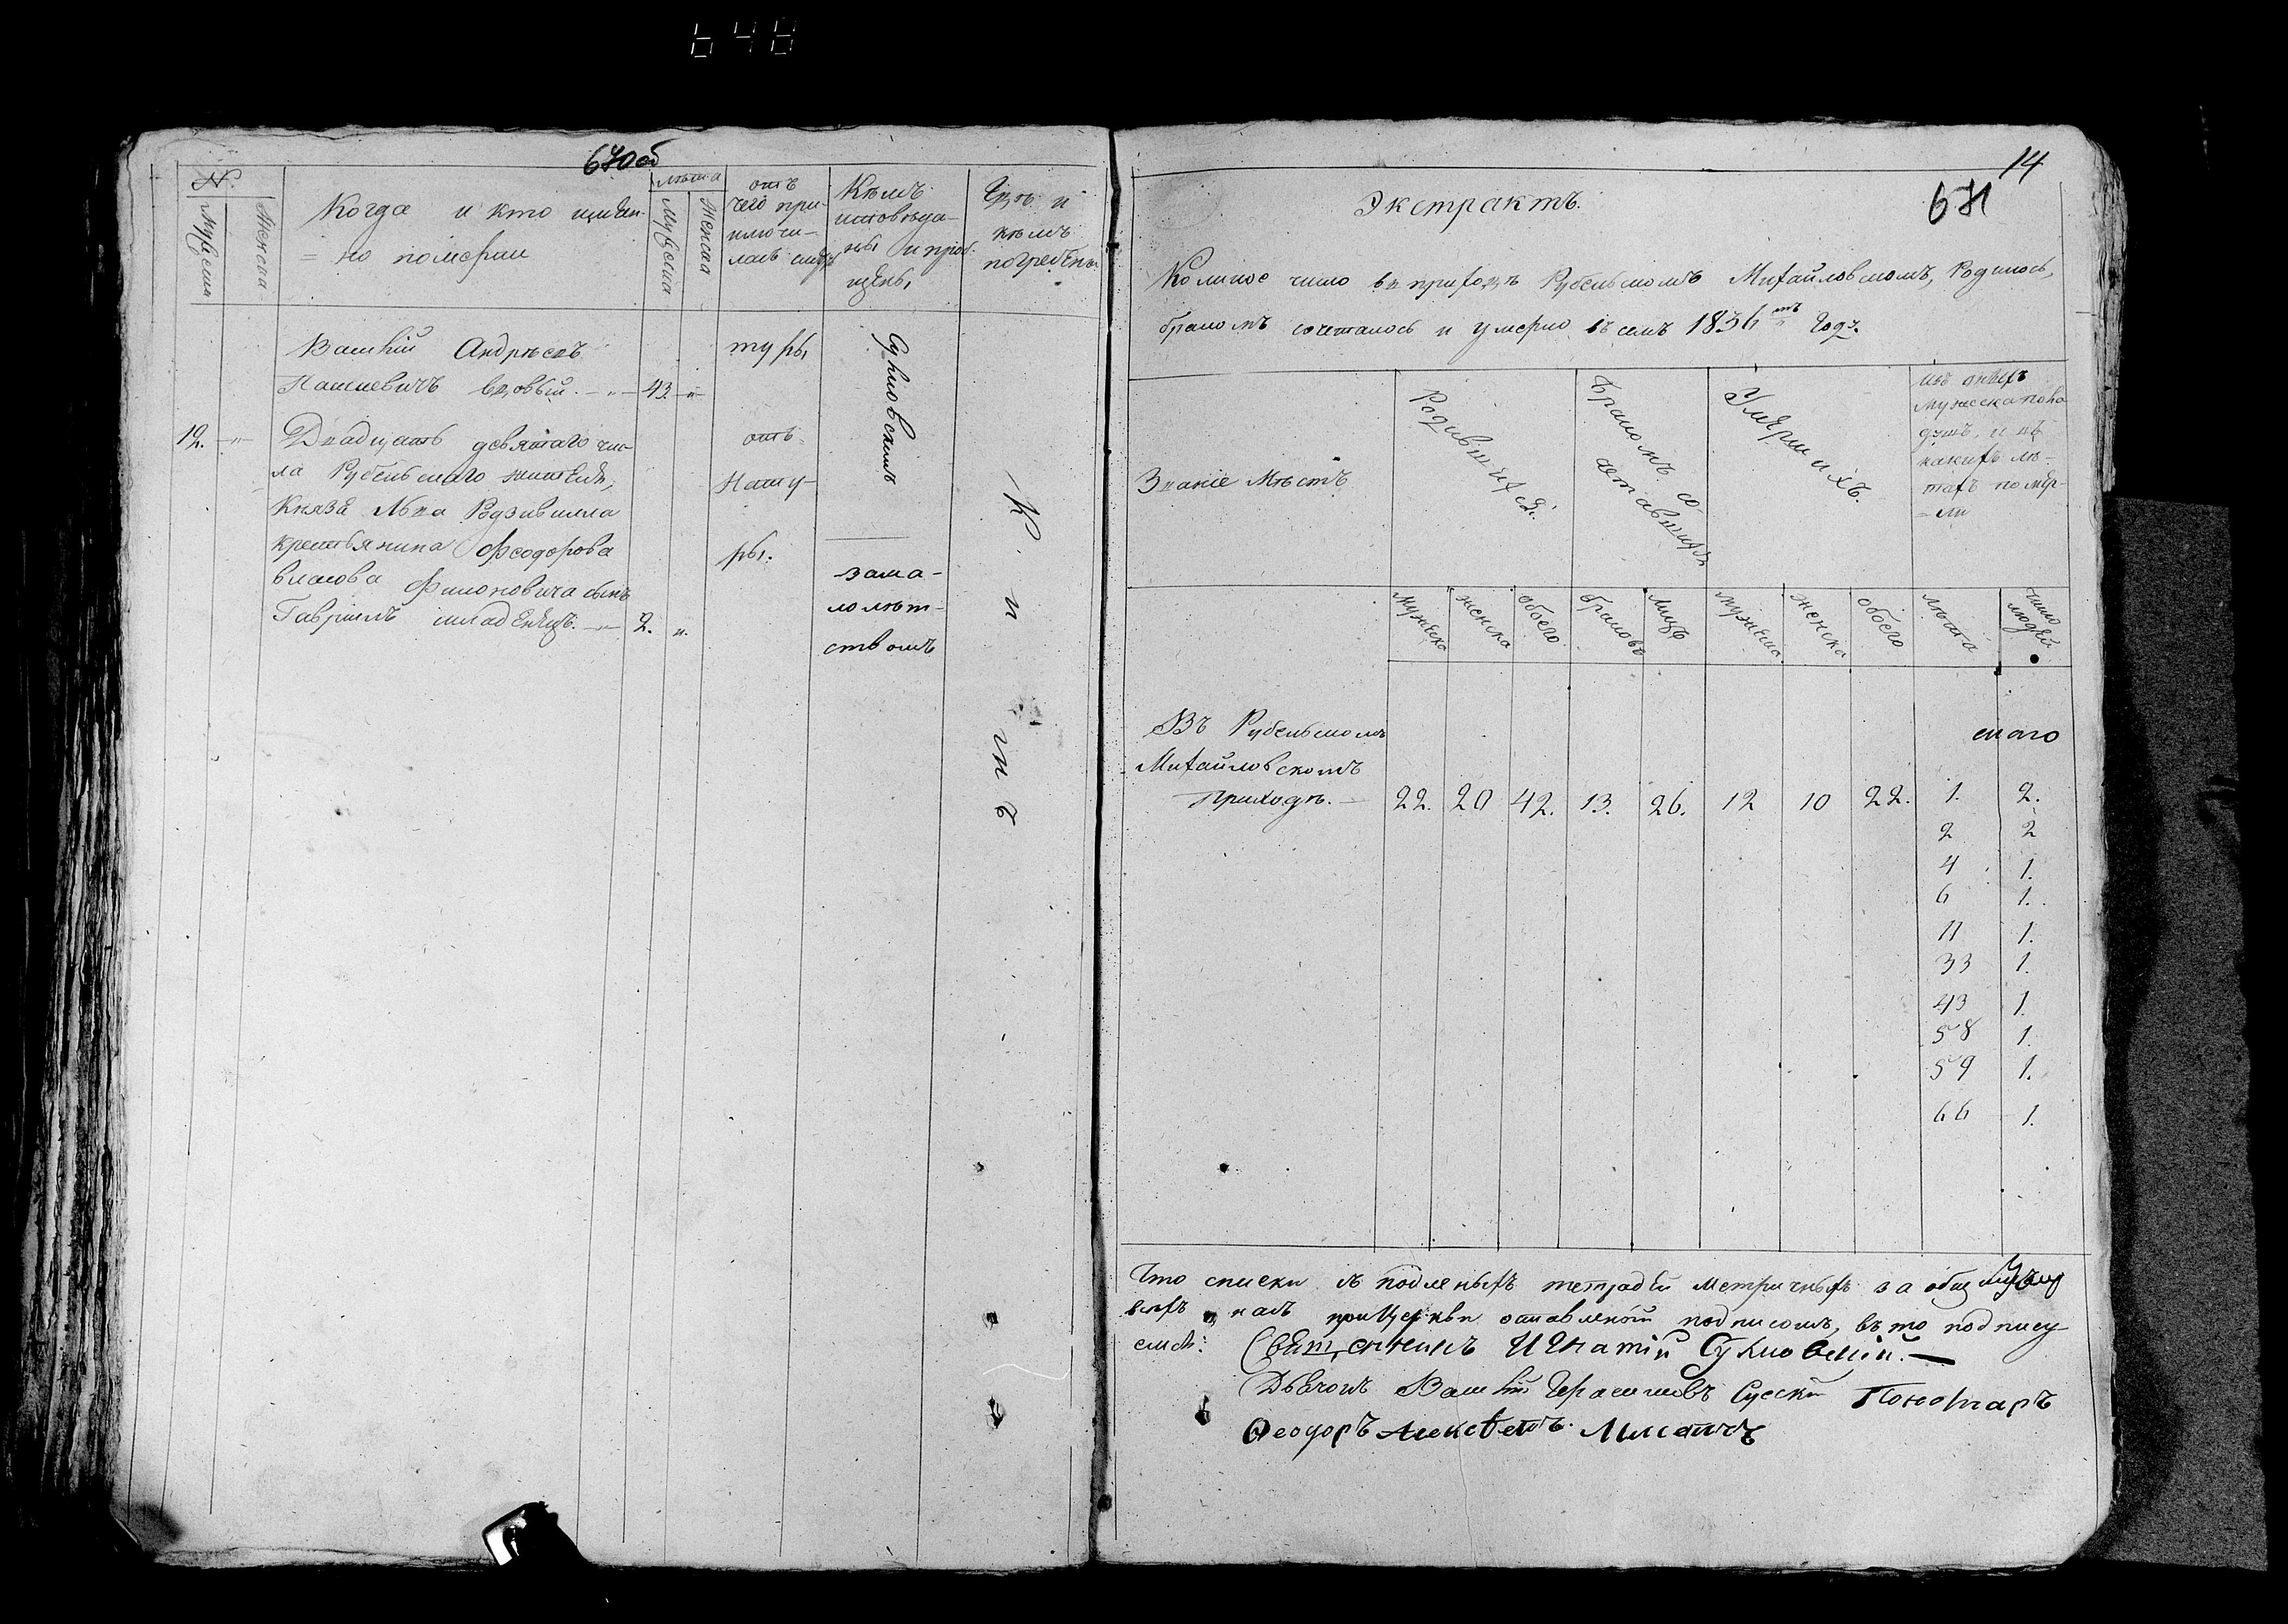 648
670об
№
Мужеска
Женска
Когда и кто имен-
= но померли
лѣта
Мужеска
Женска
отъ
чего при-
ключи-
лась смер
Кѣмъ
исповѣда-
ны и проб
щены
Гдѣ и
кѣмъ
погребены
Василій Андрѣевъ
вдовый. — 43. —
туры
Сулковскимъ
12. Двадцать девятаго чис-
ла Рубельскаго жителя,
Князя Льва Радзивилла
крестьянина Феодорова
власова Филоновича сынъ
Гавріилъ младенецъ. — 2. „
отъ
нату-
ры.
зама-
лолѣт-
ствомъ
14
671
Экстрактъ.
Коликое число въ приходѣ Рубельскомъ Михайловскомъ, Родилось,
бракомъ сочеталось и умерло въ семъ 1836мъ Годѣ.
Званіе Мѣстъ
Родившихся.
Бракомъ со-
четавшихся
Умершихъ.
Мужеска пола
душъ, и въ
какихъ лѣ-
тахъ помер-
= ли
мужеска
женска
обоего
браковъ
лицъ
мужеска
женска
обоего
лѣта
число
людей
Въ Рубельскомъ
Михайловскомъ
Приходѣ. — 22. 20 42. 13. 26. 12 10 22. 1. 2.
2 2
4 1.
6 1.
11 1.
33 1.
43 1.
58 1.
59 1.
66 1.
Что списки съ подленыхъ тетрадей метричныхъ за
при Церкви оставленой подписомъ, въ то подпису-
емся:
Священникъ Игнатій Сулковскій. —
Дьячокъ Василій Герасимовъ Пономаръ
Феодоръ Алексѣевъ